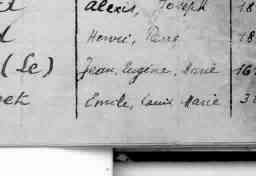 Alexis, Joseph 18
Henri, Pierre 18
(Le) Jean, Eugène, Marie 16
ek Emile, Louis Marie 3